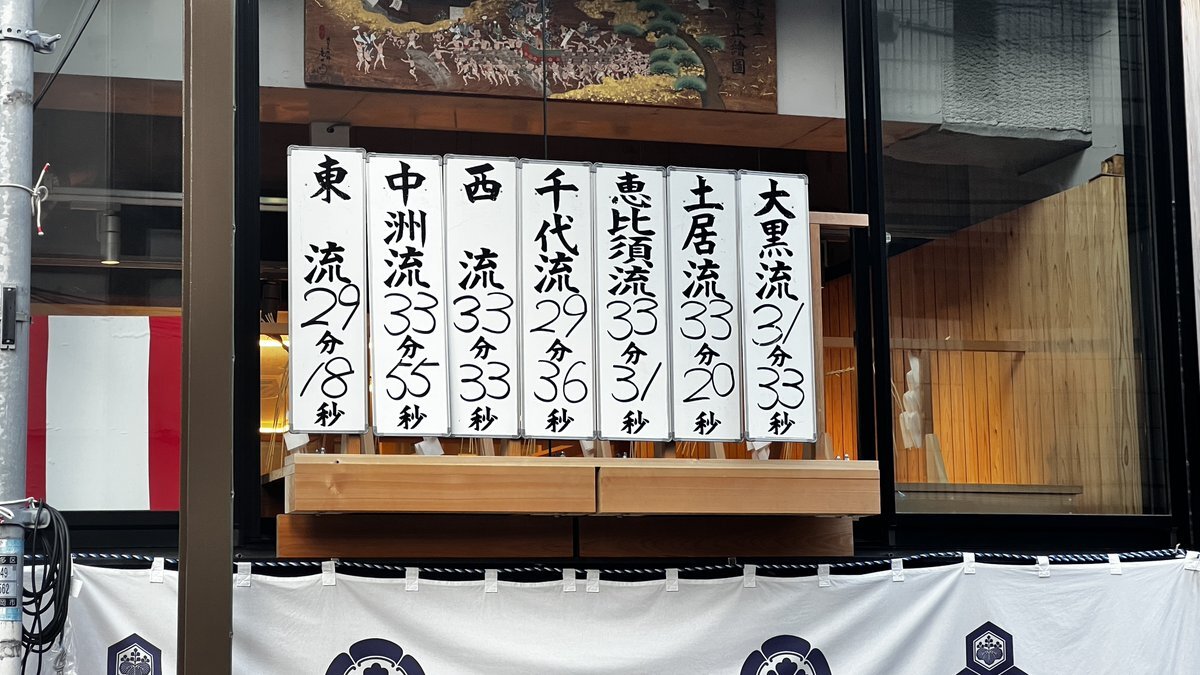 大黒流31分33秒
土居流33分20秒
恵比須流33分31秒
千代流29分36秒
西流33分33秒
中洲流33分55秒
東流29分18秒